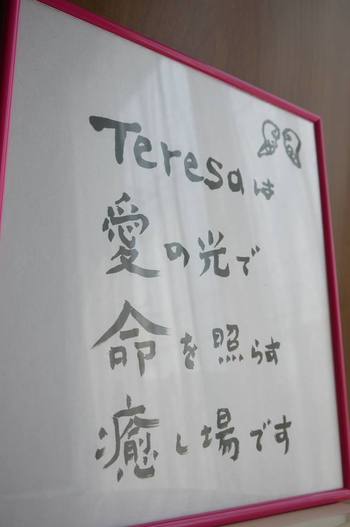 Teresaは
愛の光で
命を照らす
癒し場です